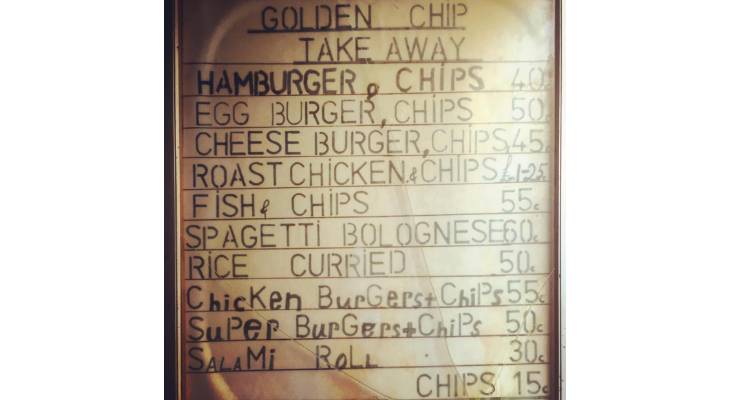 GOLDEN CHIP
TAKE AWAY
HAMBURGER, CHIPS 40c
EGG BURGER, CHIPS 50c
CHEESE BURGER, CHIPS 45c
ROAST CHICKEN & CHIPS £1-25c
FISH & CHIPS 55c
SPAGETTI BOLOGNESE 60c
RICE CURRIED 50c
ChicKen BurGers+ChiPs 55c
SuPer BurGers+ChiPs 50c
SALAMi RoLL 30c
CHIPS 15c